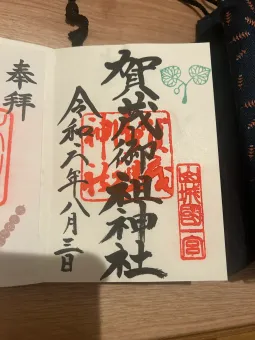 賀茂御祖神社
令和六年八月三日
奉拝
山城國一宮